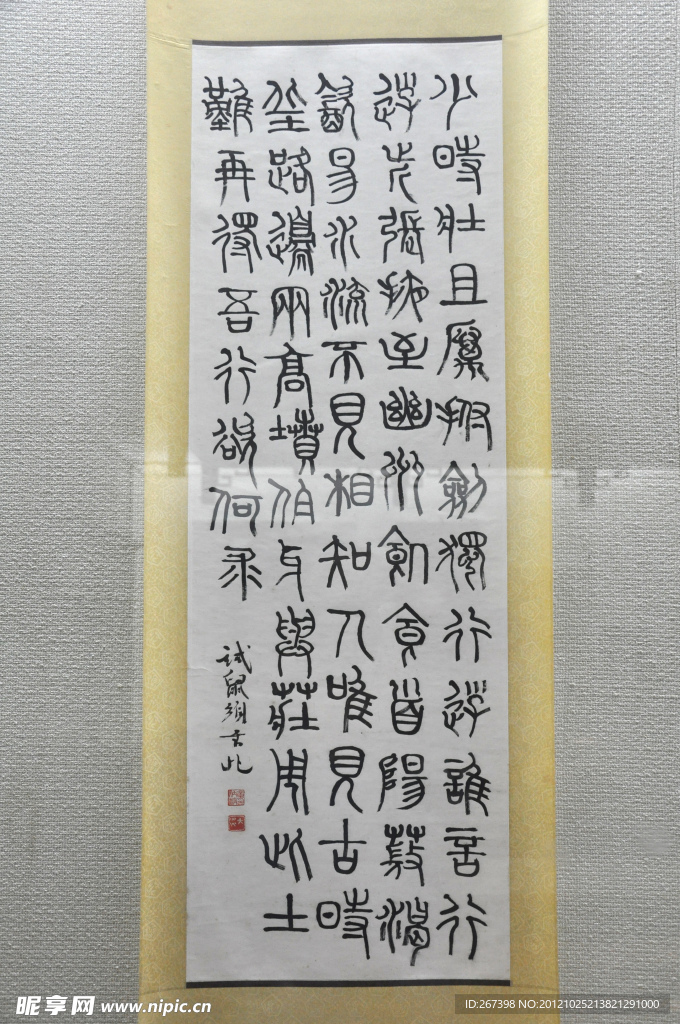 少時壯且厲撫劍獨行遊誰言行
遊近張掖至幽州飢食首陽薇渴
飲易水流不見相知人唯見古時
丘路邊兩高墳伯牙與莊周此士
難再得吾行欲何求
試鼠須書此
昵享网 www.nipic.cn
ID:267398 NO:20121025213821291000